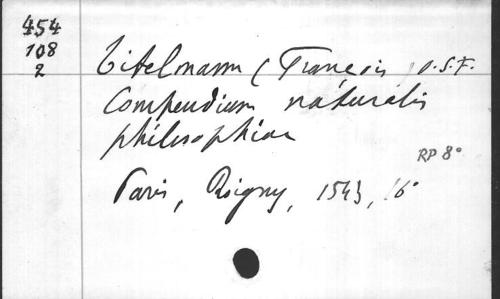 454
108
2
Titelmann (François) O.S.F.
Compendium naturalis
philosophiae
RP 8°
Paris, Roigny, 1543, 16°